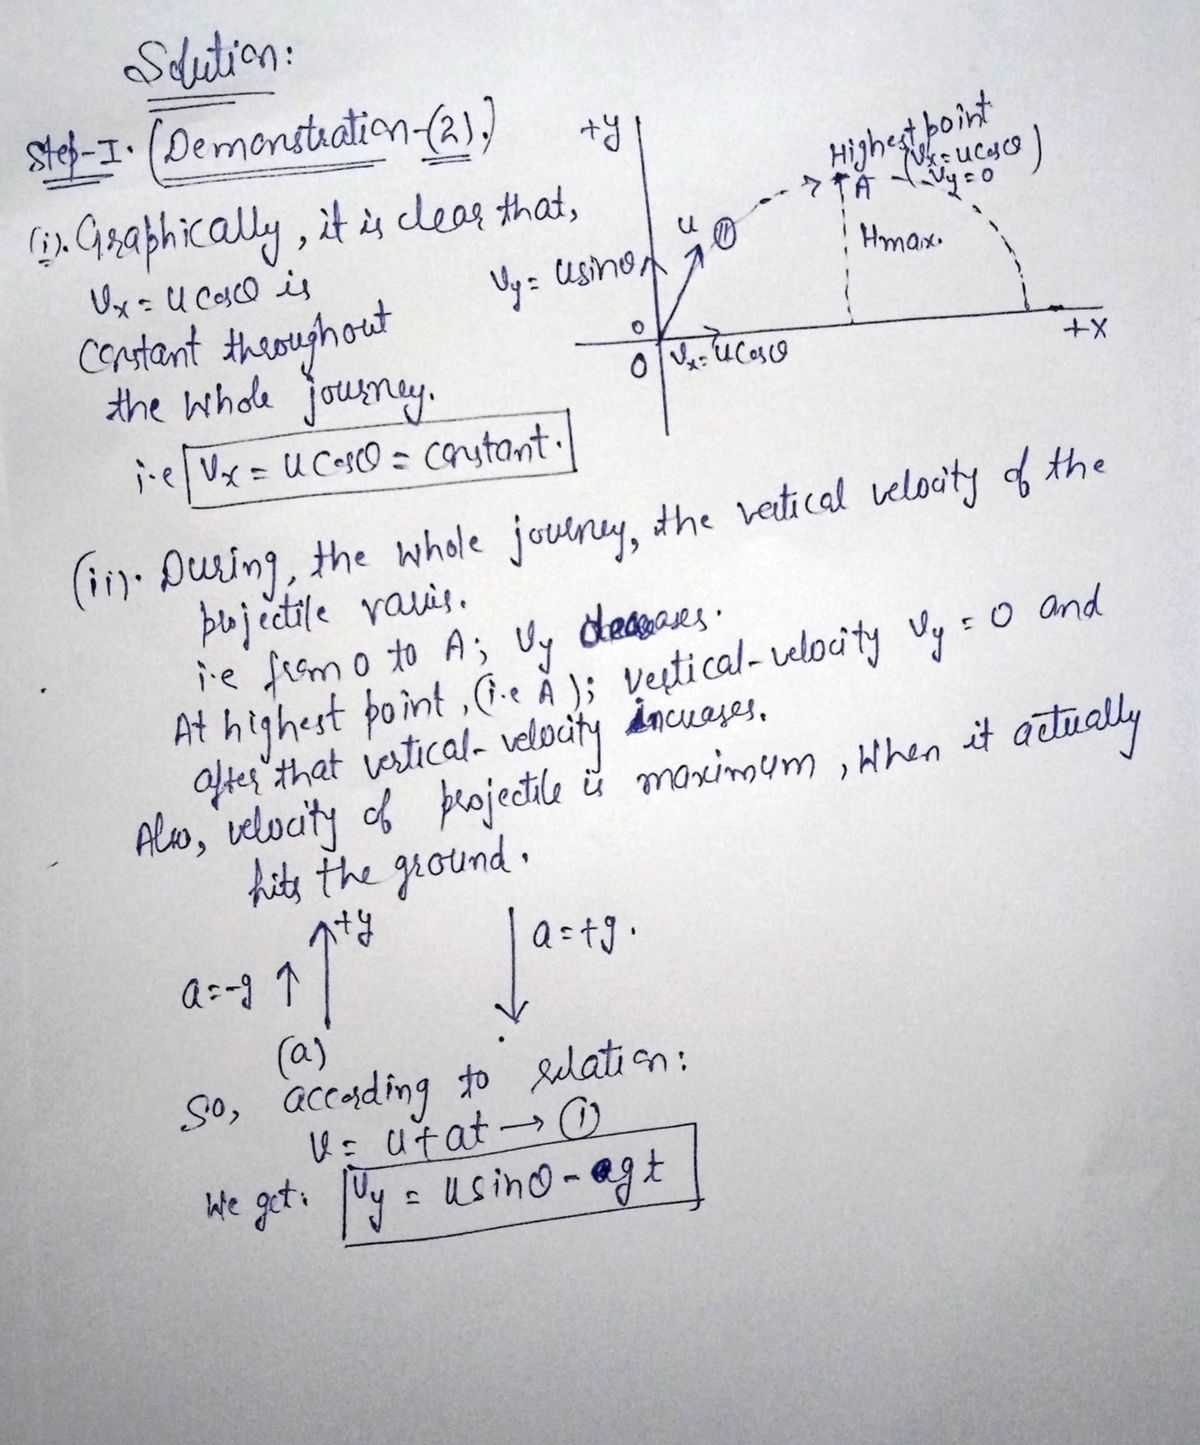 Solution:
Step-I. (Demonstration-(2).)
(i). Graphically, it is clear that,
Vx = u cosθ is
constant throughout
the whole journey.
i.e Vx = u cosθ = constant.
+y
Highest point
(Vx = u cosθ
Vy = 0)
A
u
Hmax.
Vy = usinθ
0
O
Vx = u cosθ
+x
(ii). During, the whole journey, the vertical velocity of the
projectile varies.
i.e from O to A; Vy decreases.
At highest point, (i.e A); vertical-velocity Vy = 0 and
after that vertical-velocity increases.
Also, velocity of projectile is maximum, when it actually
hits the ground.
+y
a = +g.
a = -g
(a)
So, according to relation:
V = u + at → ①
We get: Vy = usinθ - gt